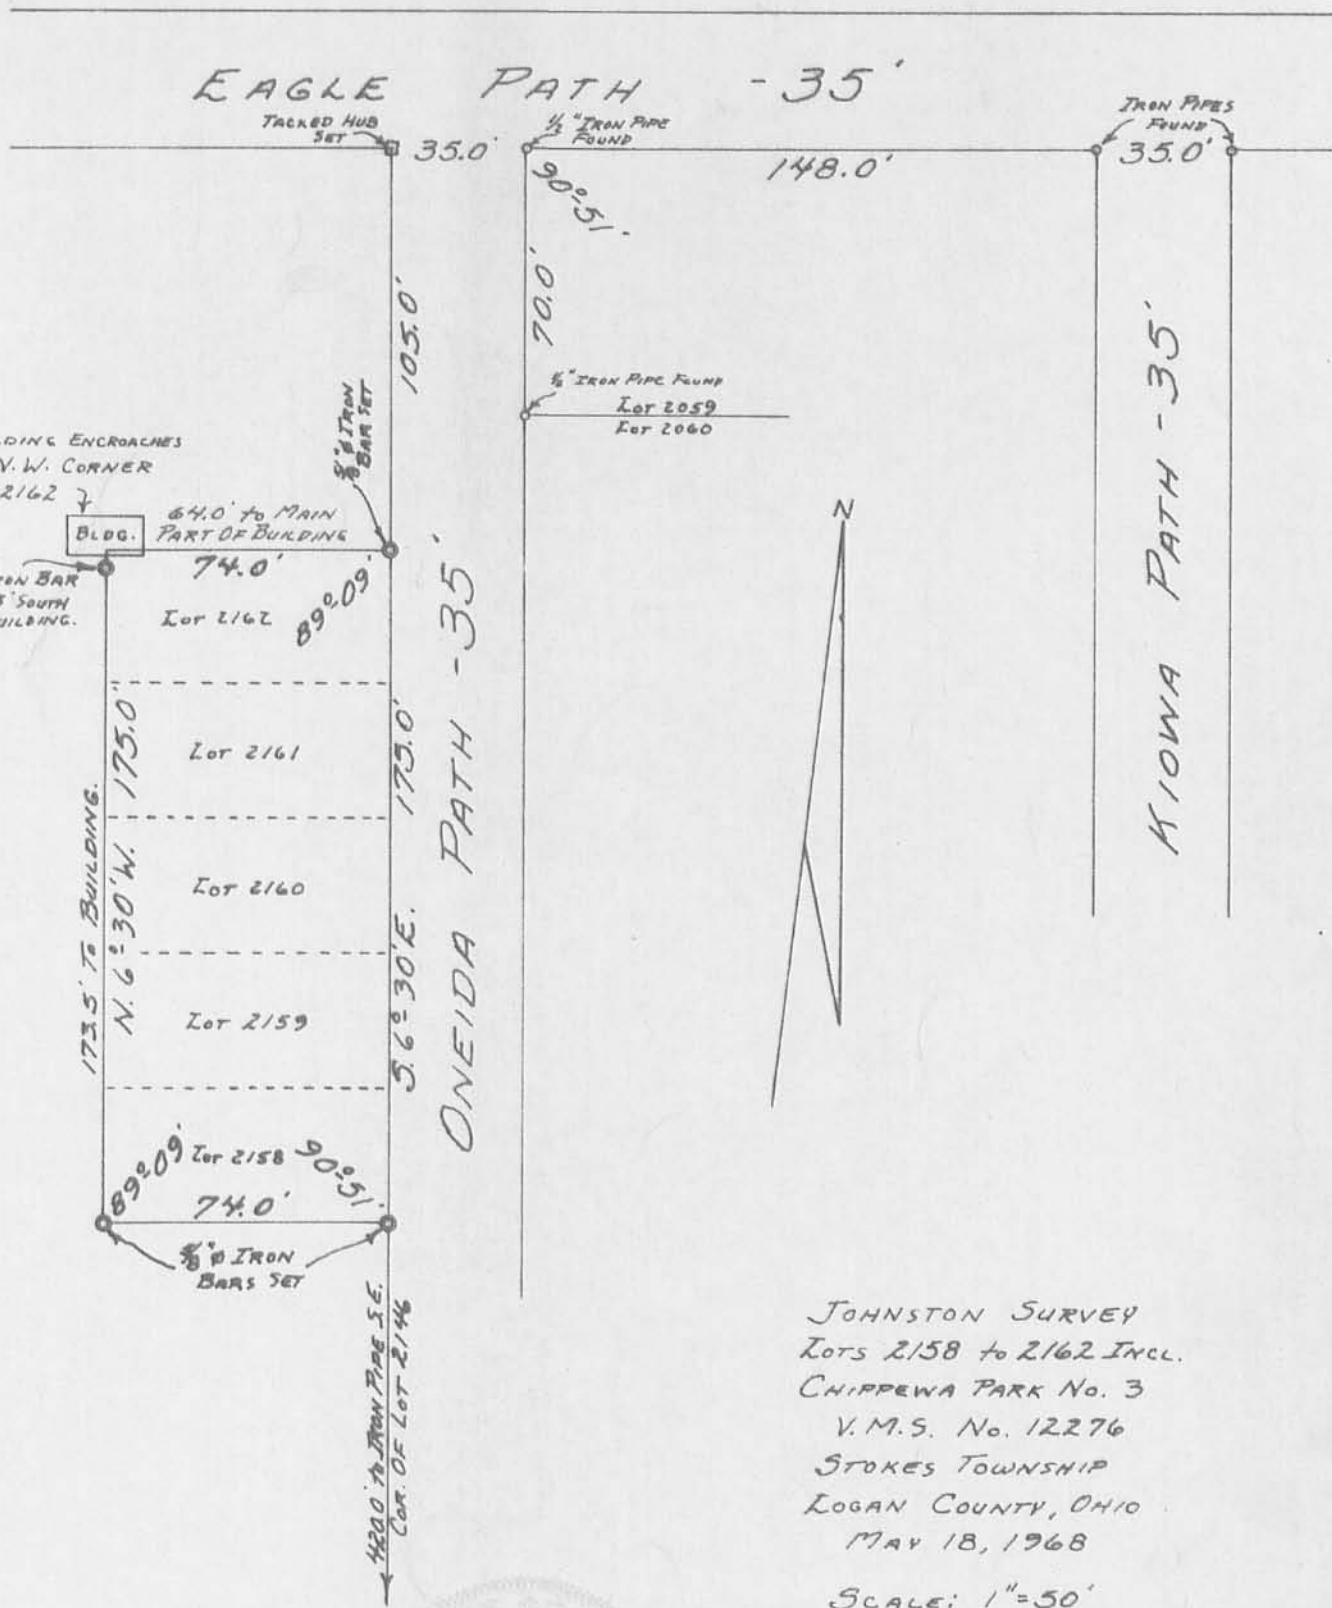 EAGLE PATH - 35'
TACKED HUB
SET
35.0'
1/2" IRON PIPE
FOUND
148.0'
IRON PIPES
FOUND
35.0'
90°-51'
70.0'
105.0'
IRON PIPE FOUND
LOT 2059
LOT 2060
5/8" Ø IRON
BAR SET
DING ENCROACHES
W. CORNER
2162
BLDG.
64.0' to MAIN
PART OF BUILDING
74.0'
BAR
SOUTH
LOT 2162
89°-09'
LOT 2161
LOT 2160
LOT 2159
LOT 2158
173.5' TO BUILDING.
N. 6°-30' W. 175.0'
175.0'
S. 6°-30' E.
ONEIDA PATH - 35'
KIOWA PATH - 35'
N
89°-09'
90°-51'
74.0'
5/8" Ø IRON
BARS SET
420.0' to IRON PIPE S.E.
COR. OF LOT 2146
JOHNSTON SURVEY
LOTS 2158 to 2162 INCL.
CHIPPEWA PARK No. 3
V.M.S. No. 12276
STOKES TOWNSHIP
LOGAN COUNTY, OHIO
MAY 18, 1968
SCALE: 1"=50'